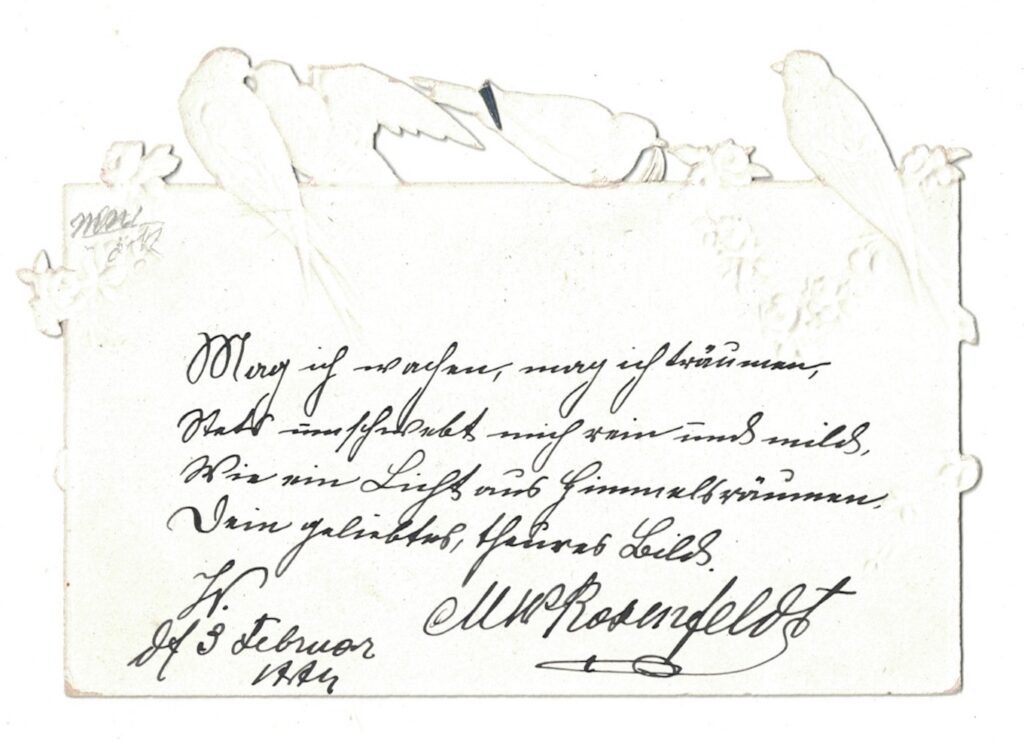 Mag ich wachen, mag ich träumen,
Stets umschwebt mich rein und mild,
Wie ein Licht aus Himmelsräumen,
Dein geliebtes, theures Bild.
W.
3 Februar
M W Rosenfeldt